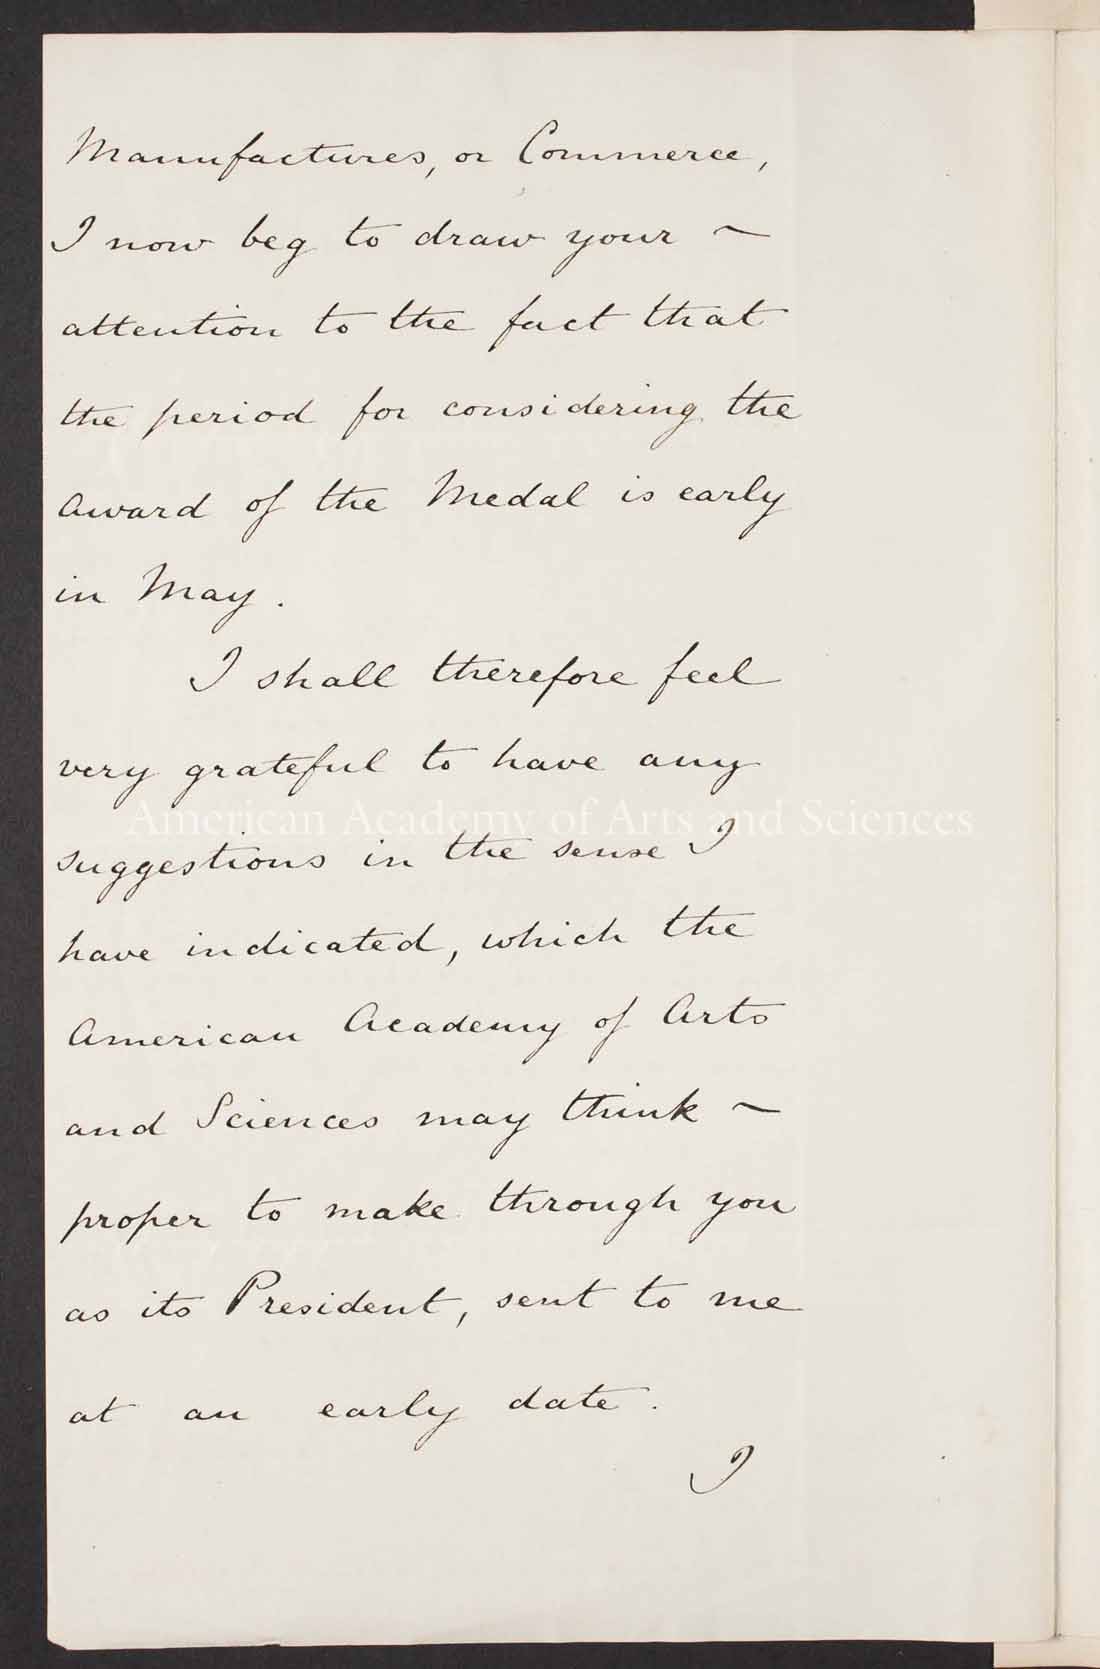 Manufactures, or Commerce,
I now beg to draw your ~
attention to the fact that
the period for considering the
award of the Medal is early
in May.
I shall therefore feel
very grateful to have any
American Academy of Arts and Sciences
suggestions in the sense I
have indicated, which the
American Academy of Arts
and Sciences may think ~
proper to make through you
as its President, sent to me
at an early date.
I